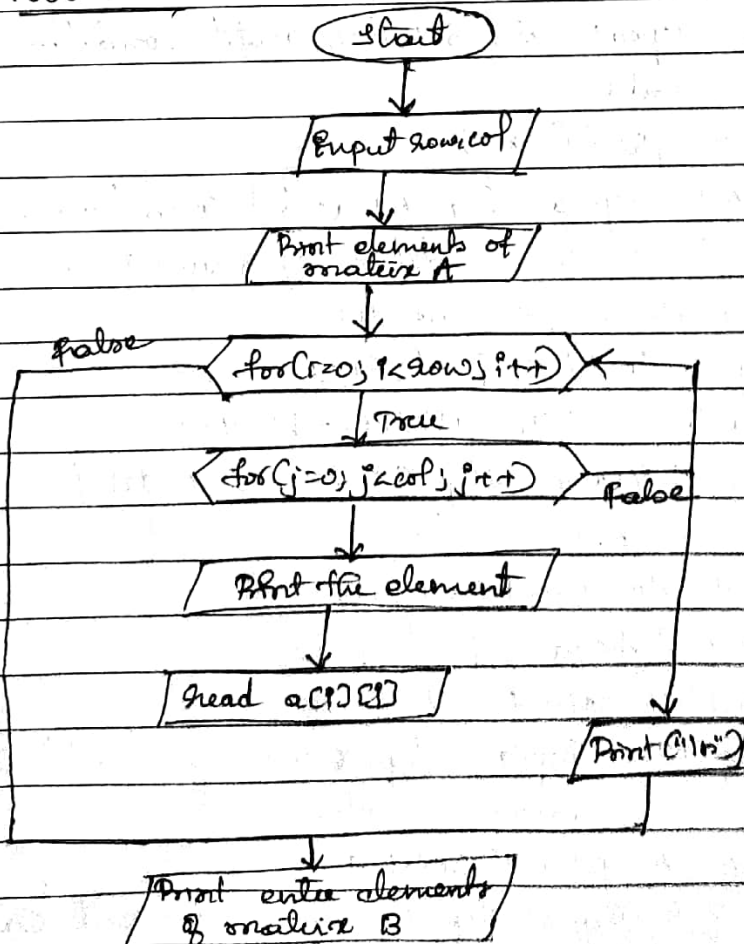 Start
Input row, col
Print elements of
matrix A
False
for(i=0; i<row; i++)
True
for(j=0; j<col; j++)
False
Print the element
read a[i][j]
Print("\n")
Print enter elements
of matrix B